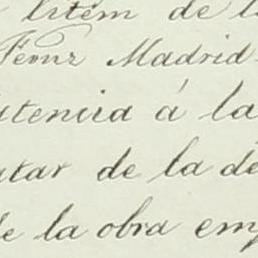 litem de l
Fernz Madrid
utencia á la
atar de la de
de la obra emp